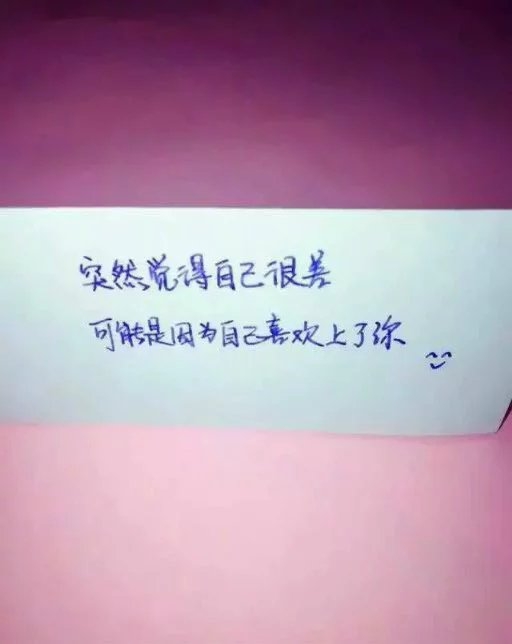 突然觉得自己很差
可能是因为自己喜欢上了你